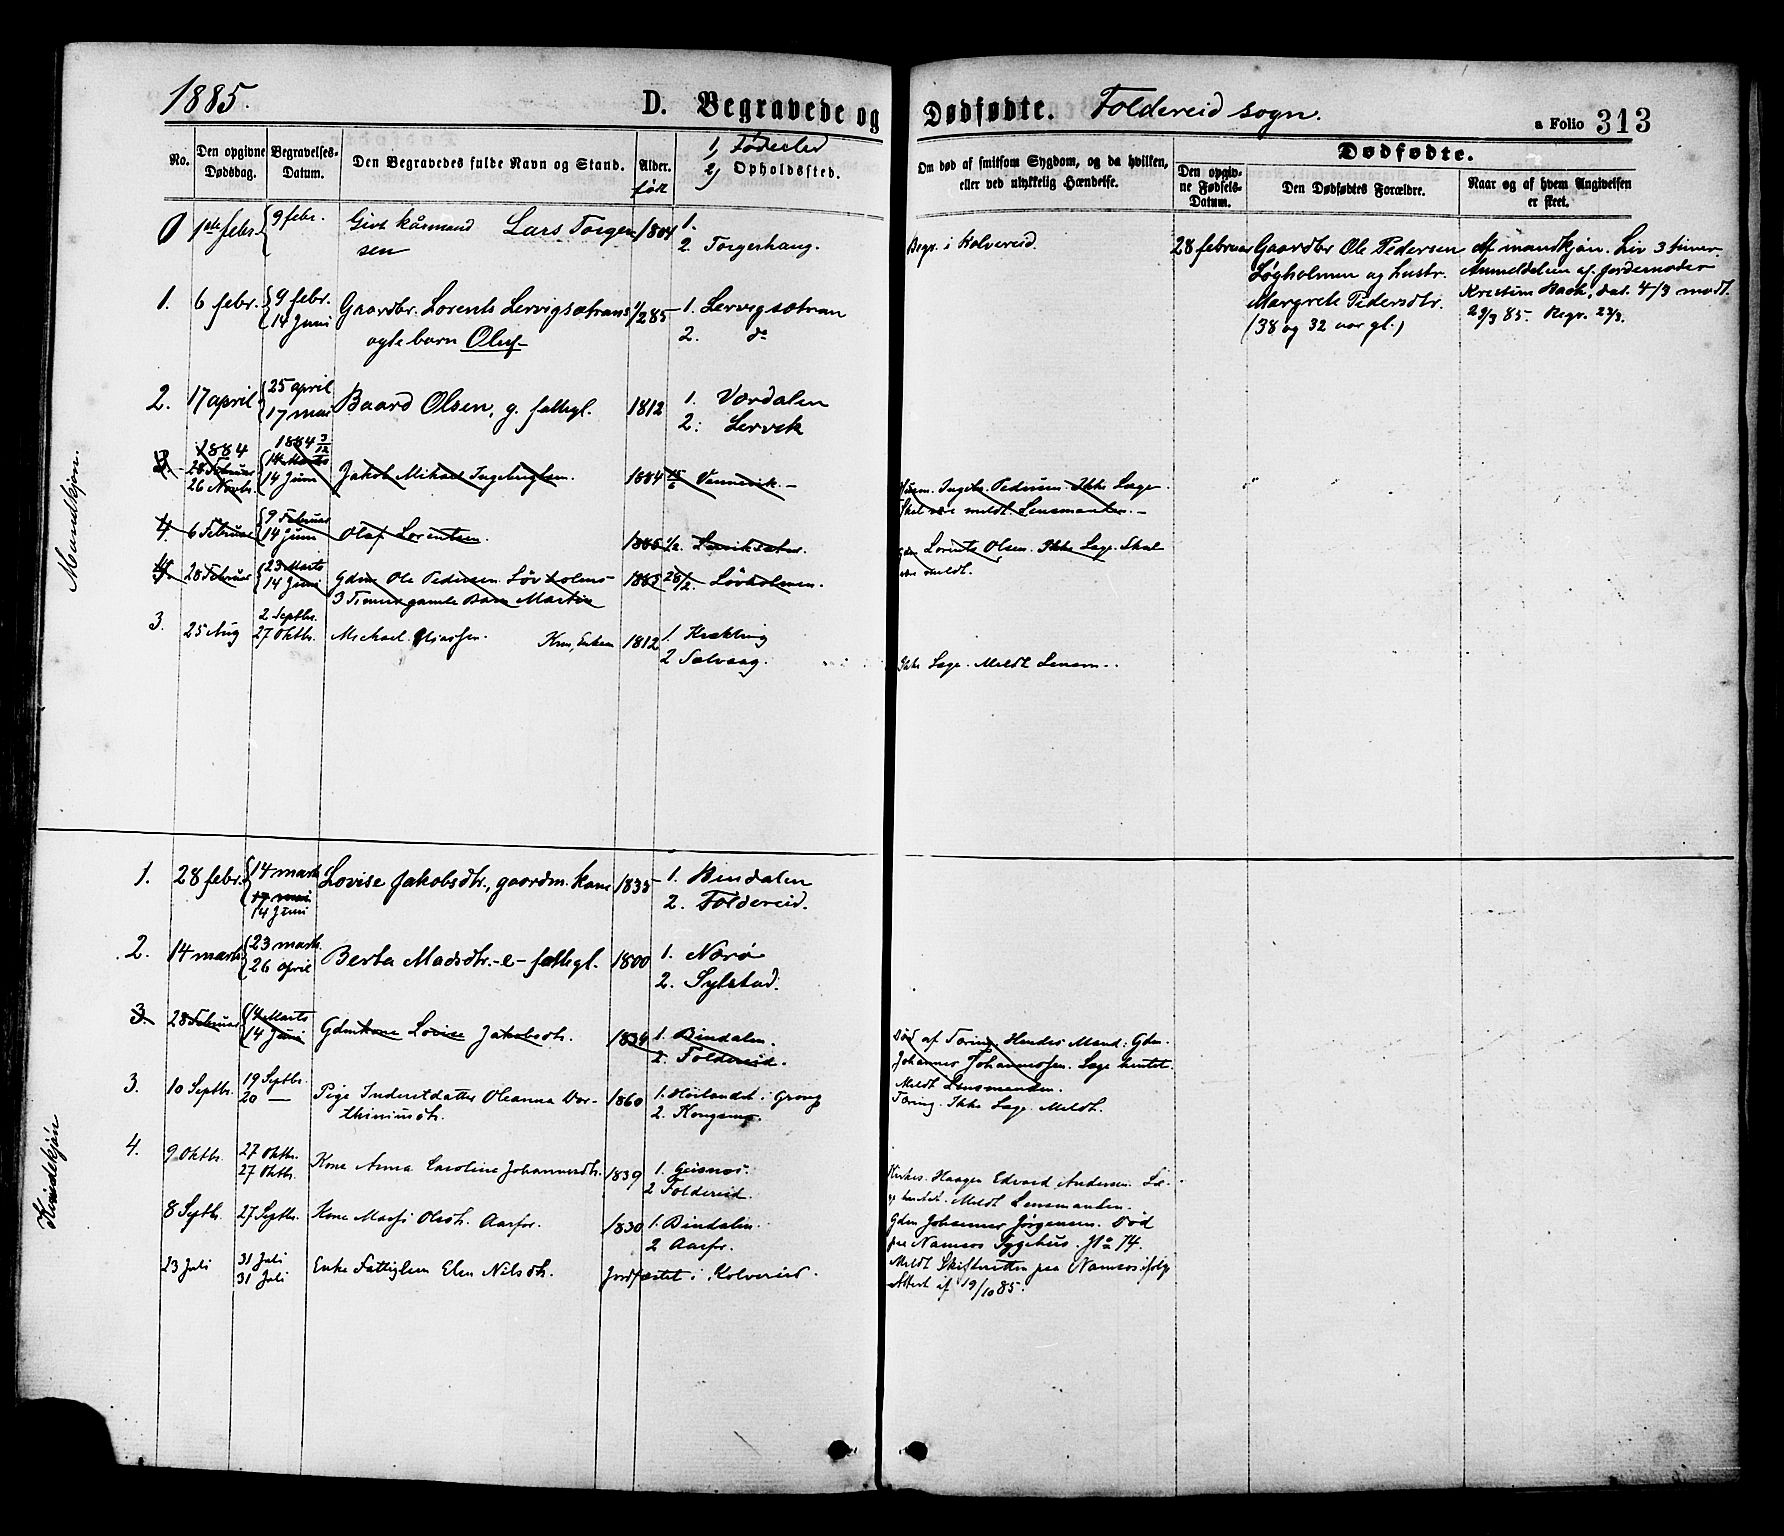 1885.
D. Begravede og Dødfødte. Foldereid sogn.
a Folio 313
No.
Den opgivne Dødsdag.
Begravelses-Datum.
Den Begravedes fulde Navn og Stand.
Alder. født
1) Fødested
2) Opholdssted.
Om død af smitsom Sygdom, og da hvilken, eller ved ulykkelig Hændelse.
Dødfødte.
Den opgivne Fødsels-Datum.
Den Dødfødtes Forældre.
Naar og af hvem Angivelsen er skeet.
Mandkjøn.
0 1ste febr. 9 febr. Givt kårmand Lars Torger- 1804 1.
sen 2. Torgerhaug.
Begr. i Kolvereid.
28 februar Gaardbr Ole Pedersen Af mandkjøn. Liv 3 timer.
Løgholmen og hustr. Anmeldelsen af Jordemoder
Margrete Pedersdtr. Kristine Bach, dat. 4/3 modt.
(38 og 32 aar gl.) 23/3 85. Regr. 23/3.
1. 6 febr. 9 febr. Gaardbr. Lorents Lervigsætrans 1/2 85 1. Lervigsætran
14 Juni ægte barn Oluf 2. do
2. 17 april 25 april Baard Olsen, g. fattigl. 1812 1. Værdalen
17 mai 2: Lervik
3. 1884 1884 3/12
28 Februar 14 Marts
26 Novbr. 14 Juni Jakob Mikael Ingebrigtsen. 1884 15/6 Vennevik.
Ingebr. Pedersen. Ikke Læge.
meldt. Lensmanden.
4. 6 Februar 9 Februar
14 Juni Olaf Lorentsen. 1885 1/2 Lerviksætr.
Gdm Lorents Olsen. Ikke Læge. Skal
meldt.
28 Februar 23 Marts
14 Juni Gdm Ole Pedersen Løvholmens 1885 28/2 Løvholmen.
3 Timer gamle Barn Martin
3. 25 Aug 2 Septbr.
27 Oktbr. Michael 1812 1. Kvækling
2 Sælvaag.
Ikke Læge. Meldt Lensm.
Kvindekjøn
1. 28 febr. 14 marts Lovise Jakobsdtr., gaardm. kone 1835 1. Bindalen
17 mai
14 Juni 2. Foldereid.
2. 14 marts 23 marts. Berta Madsdtr. -e- fattigl. 1800 1. Nærø
26 april 2. Sylstad.
3. 28 Februar 14 Marts
14 Juni Gdmkone Lovise Jakobsdtr. 1834 1. Bindalen.
2. Foldereid.
Død af Tæring. Hendes Mand: Gdm.
Johannes Johannessen. Læge hentet.
Meldt Lensmanden.
3. 10 Septbr. 19 Septbr.
20 — Pige Inderstdatter Oleanna Dor- 1860 1. Høilandet i Grong
thiniusdtr. 2. Kongsmo.
Tæring. Ikke Læge. Meldt.
4. 9 Oktbr. 27 Oktbr.
27 Oktbr. Kone Anna Caroline Johannesdtr. 1839 1. Geisnes.
2 Foldereid.
Haagen Edvard Andersen. Læ-
ge hentet. Meldt Lensmanden.
8 Septbr. 27 Septbr. Kone Olsdtr. Aarfor. 1830 1. Bindalen.
2 Aarfor.
Gdm Johannes Jørgensen. Død
paa Namsos Sygehus. No 74.
Meldt Skifteretten paa Namsos ifølge
Attest af 19/10 85.
23 Juli 31 Juli
31 Juli Enke Fattiglem Elen Nilsdtr. Jordfæstet i Kolvereid.